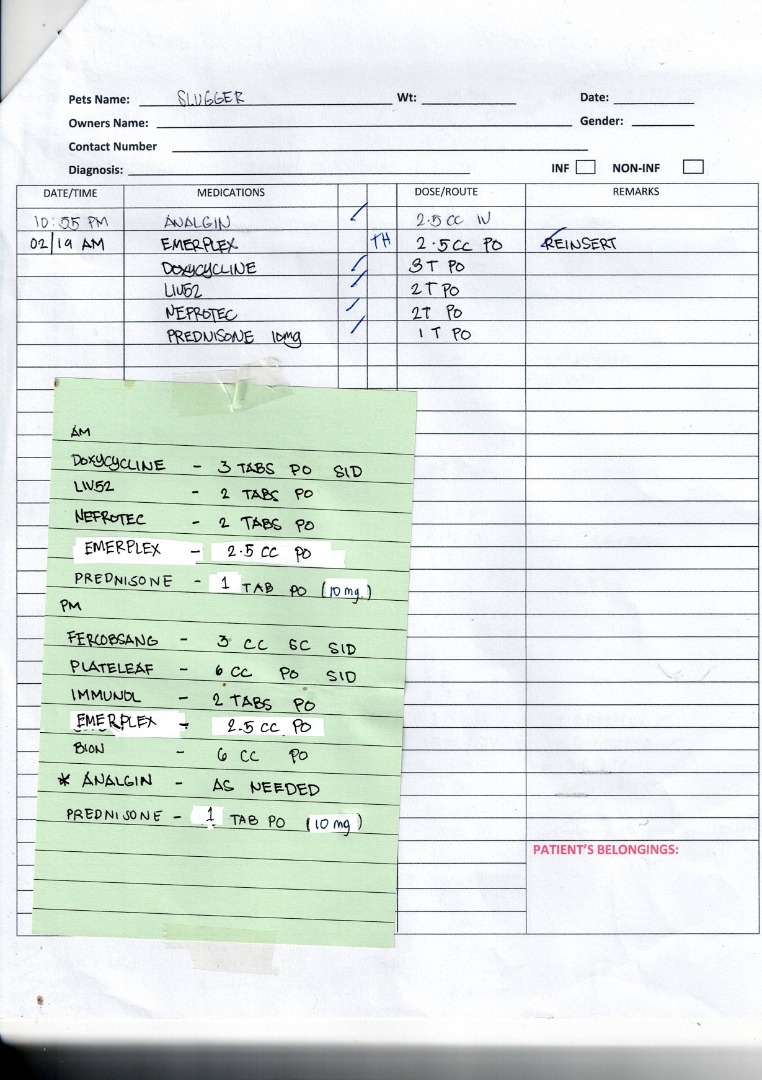 Pets Name: SLUGGER Wt: Date:
Owners Name: Gender:
Contact Number
Diagnosis: INF NON-INF
DATE/TIME MEDICATIONS DOSE/ROUTE REMARKS
10:55 PM ANALGIN 2.5 CC IV
02/19 AM EMERPLEX TH 2.5CC PO REINSERT
DOXYCYCLINE 3 T PO
LIV52 2 T PO
NEFROTEC 2T PO
PREDNISONE 10mg 1 T PO
AM
DOXYCYCLINE - 3 TABS PO SID
LIV52 - 2 TABS PO
NEFROTEC - 2 TABS PO
EMERPLEX - 2.5 CC PO
PREDNISONE - 1 TAB PO (10 mg.)
PM
FERCOBSANG - 3 CC SC SID
PLATELEAF - 6 CC PO SID
IMMUNOL - 2 TABS PO
EMERPLEX - 2.5 CC PO
BION - 6 CC PO
* ANALGIN - AS NEEDED
PREDNISONE - 1 TAB PO (10 mg)
PATIENT'S BELONGINGS: